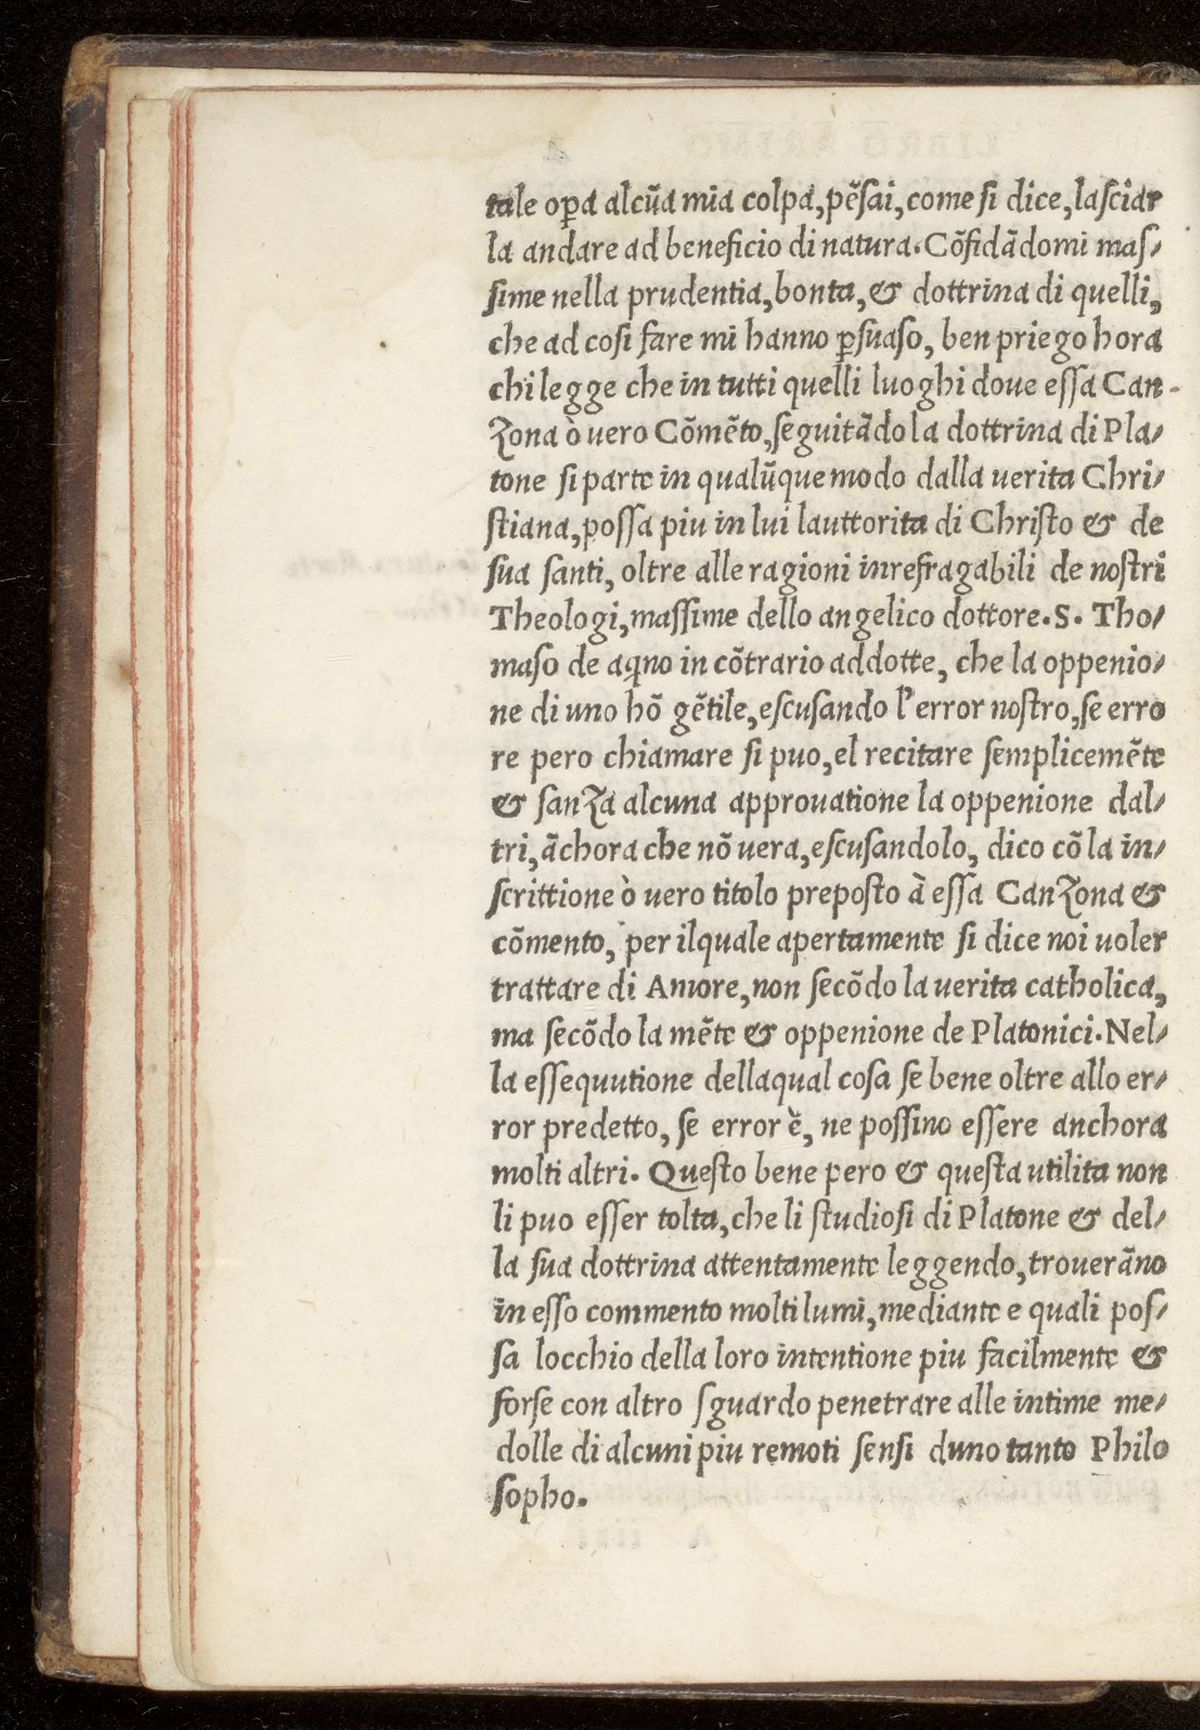 tale oꝑa alcūa mia colpa, pẽsai, come si dice, lasciar
la andare ad beneficio di natura. Cõfidãdomi mas⸗
sime nella prudentia, bonta, & dottrina di quelli,
che ad cosi fare mi hanno ꝑsuaso, ben priego hora
chi legge che in tutti quelli luoghi doue essa Can-
zona ò uero Cõmẽto, seguitãdo la dottrina di Pla⸗
tone si parte in qualũque modo dalla uerita Chri⸗
stiana, possa piu in lui lauttorita di Christo & de
sua santi, oltre alle ragioni inrefragabili de nostri
Theologi, massime dello angelico dottore. S. Tho⸗
maso de aꝗno in cõtrario addotte, che la oppenio⸗
ne di uno hõ gẽtile, escusando l'error nostro, se erro
re pero chiamare si puo, el recitare semplicemẽte
& sanza alcuna approuatione la oppenione dal⸗
tri, ãchora che nõ uera, escusandolo, dico cõ la in⸗
scrittione ò uero titolo preposto à essa Canzona &
cõmento, per ilquale apertamente si dice noi uoler
trattare di Amore, non secõdo la uerita catholica,
ma secõdo la mẽte & oppenione de Platonici. Nel⸗
la essequutione dellaqual cosa se bene oltre allo er⸗
ror predetto, se error è, ne possino essere anchora
molti altri. Questo bene pero & questa utilita non
li puo esser tolta, che li studiosi di Platone & del⸗
la sua dottrina attentamente leggendo, trouerãno
in esso commento molti lumi, mediante e quali pos⸗
sa locchio della loro intentione piu facilmente &
forse con altro sguardo penetrare alle intime me⸗
dolle di alcuni piu remoti sensi duno tanto Philo
sopho.